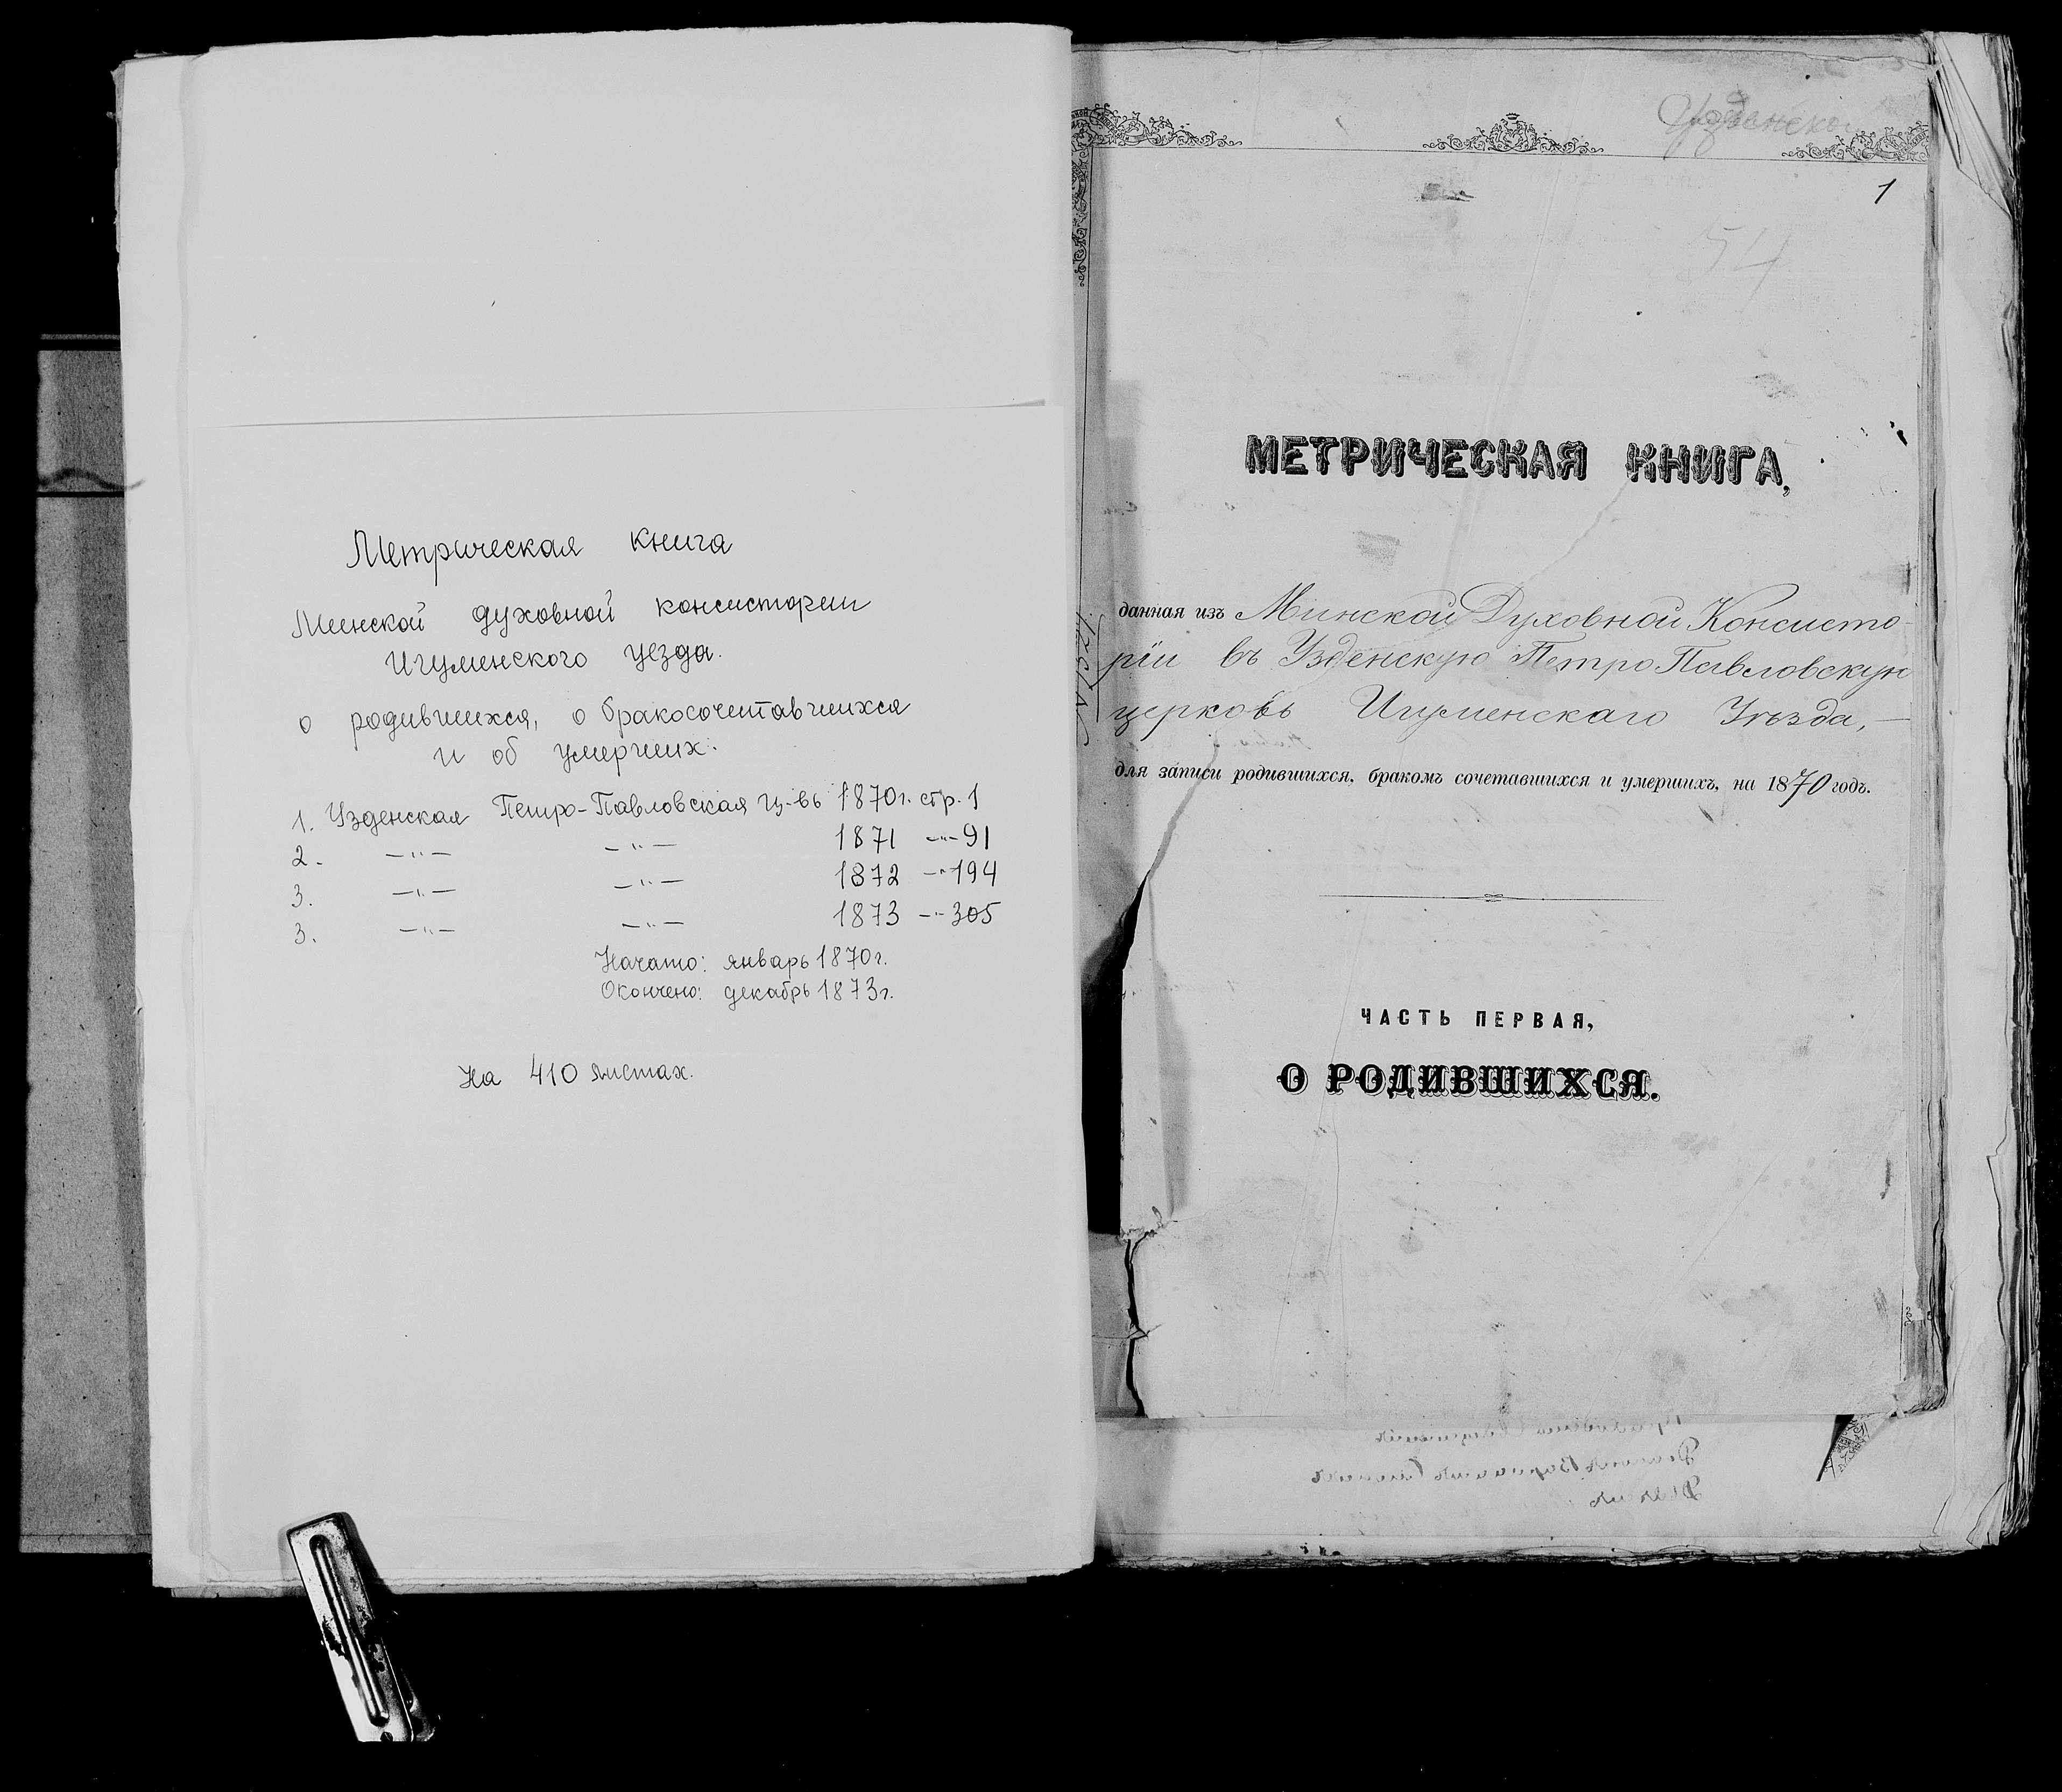 Метрическая книга
Минской духовной консистории
Игуменского уезда.
о родившихся, о бракосочетавшихся
и об умерших.
1. Узденская Петро-Павловская ц-вь 1870г. стр. 1
2. —"— —"— 1871 —"— 91
3. —"— —"— 1872 —"— 194
3. —"— —"— 1873 —"— 305
Начато: январь 1870г.
Окончено: декабрь 1873г.
На 410 листах.
Узденско
1
54
МЕТРИЧЕСКАЯ КНИГА,
данная изъ Минской Духовной Консисто-
ріи въ Узденскую Петро Павловскую
церковь Игуменскаго Уѣзда, —
для записи родившихся, бракомъ сочетавшихся и умершихъ, на 1870 годъ.
ЧАСТЬ ПЕРВАЯ,
О РОДИВШИХСЯ.